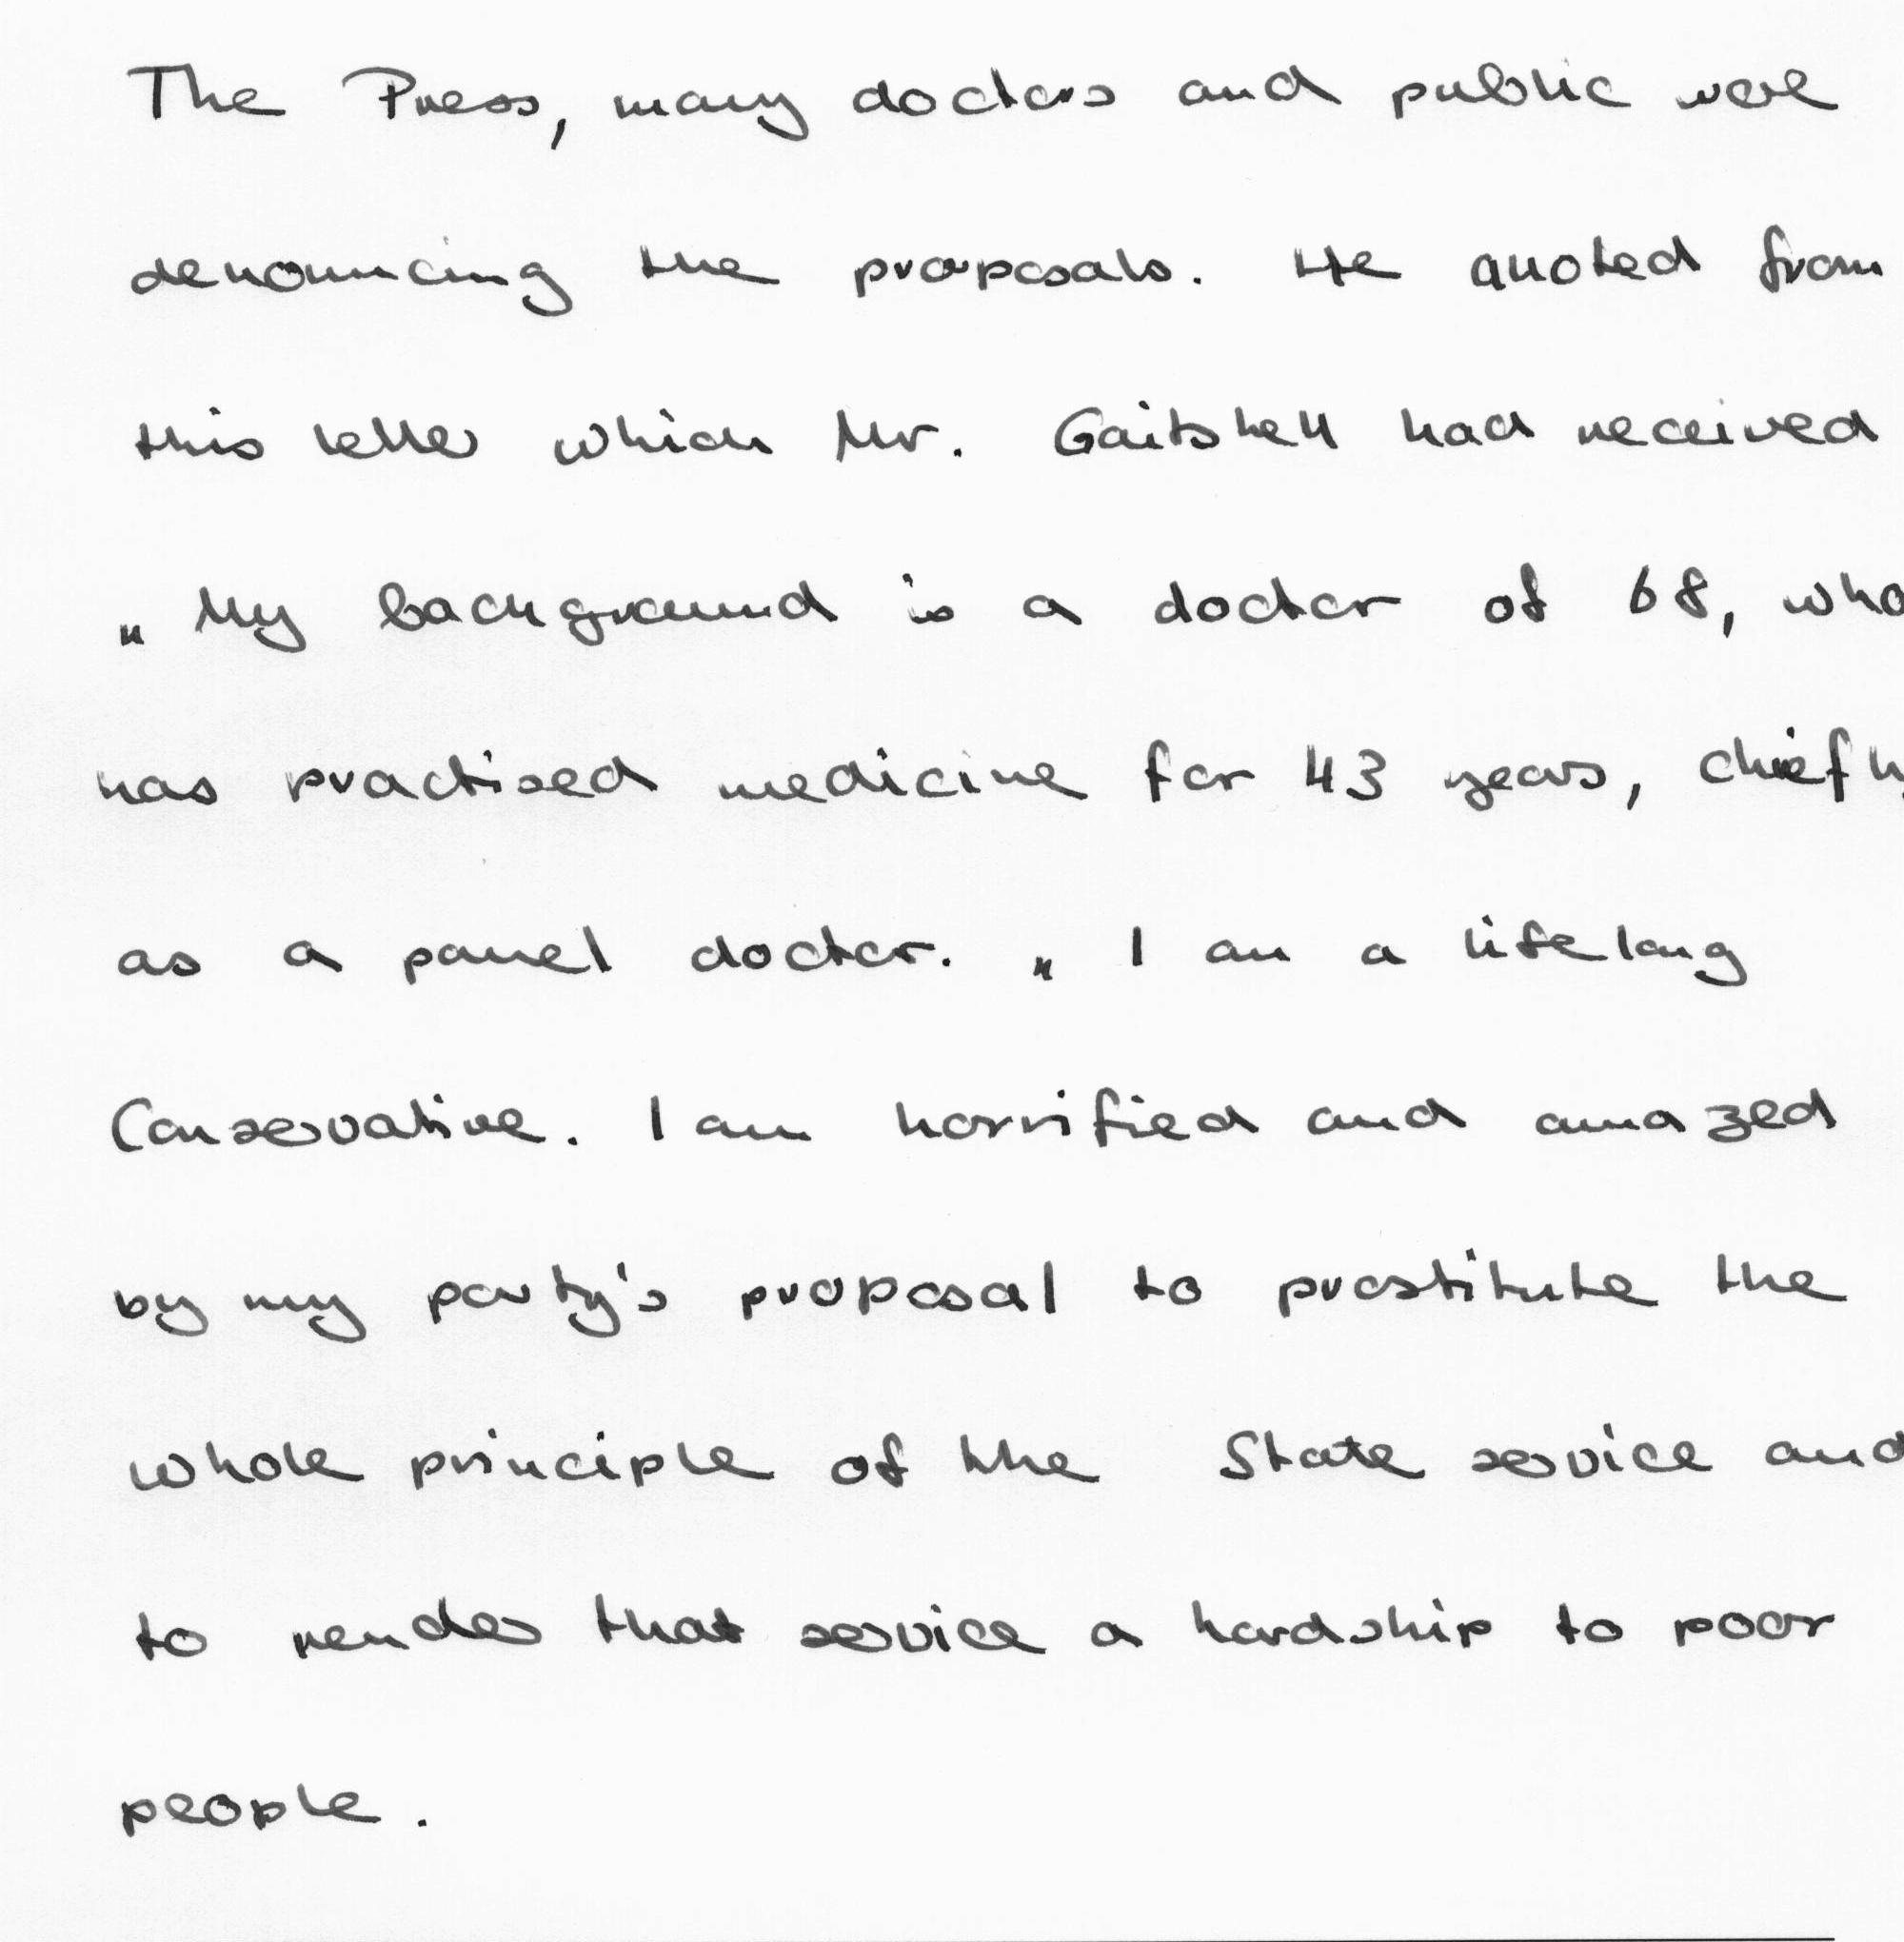 The Press, many doctors and public were
denouncing the proposals. He quoted from
this letter which Mr. Gaitskell had received
„ My background is a doctor of 68, who
has practised medicine for 43 years, chiefly
as a panel doctor. „ I am a lifelong
Conservative. I am horrified and amazed
by my party's proposal to prostitute the
whole principle of the State service and
to render that service a hardship to poor
people.